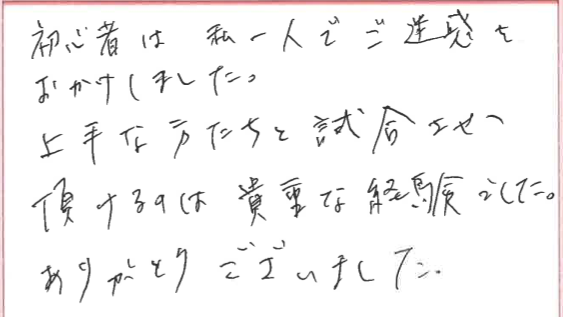 初心者は 私一人でご迷惑を
おかけしました。
上手な方たちと試合させて
頂けるのは貴重な経験でした。
ありがとうございました。